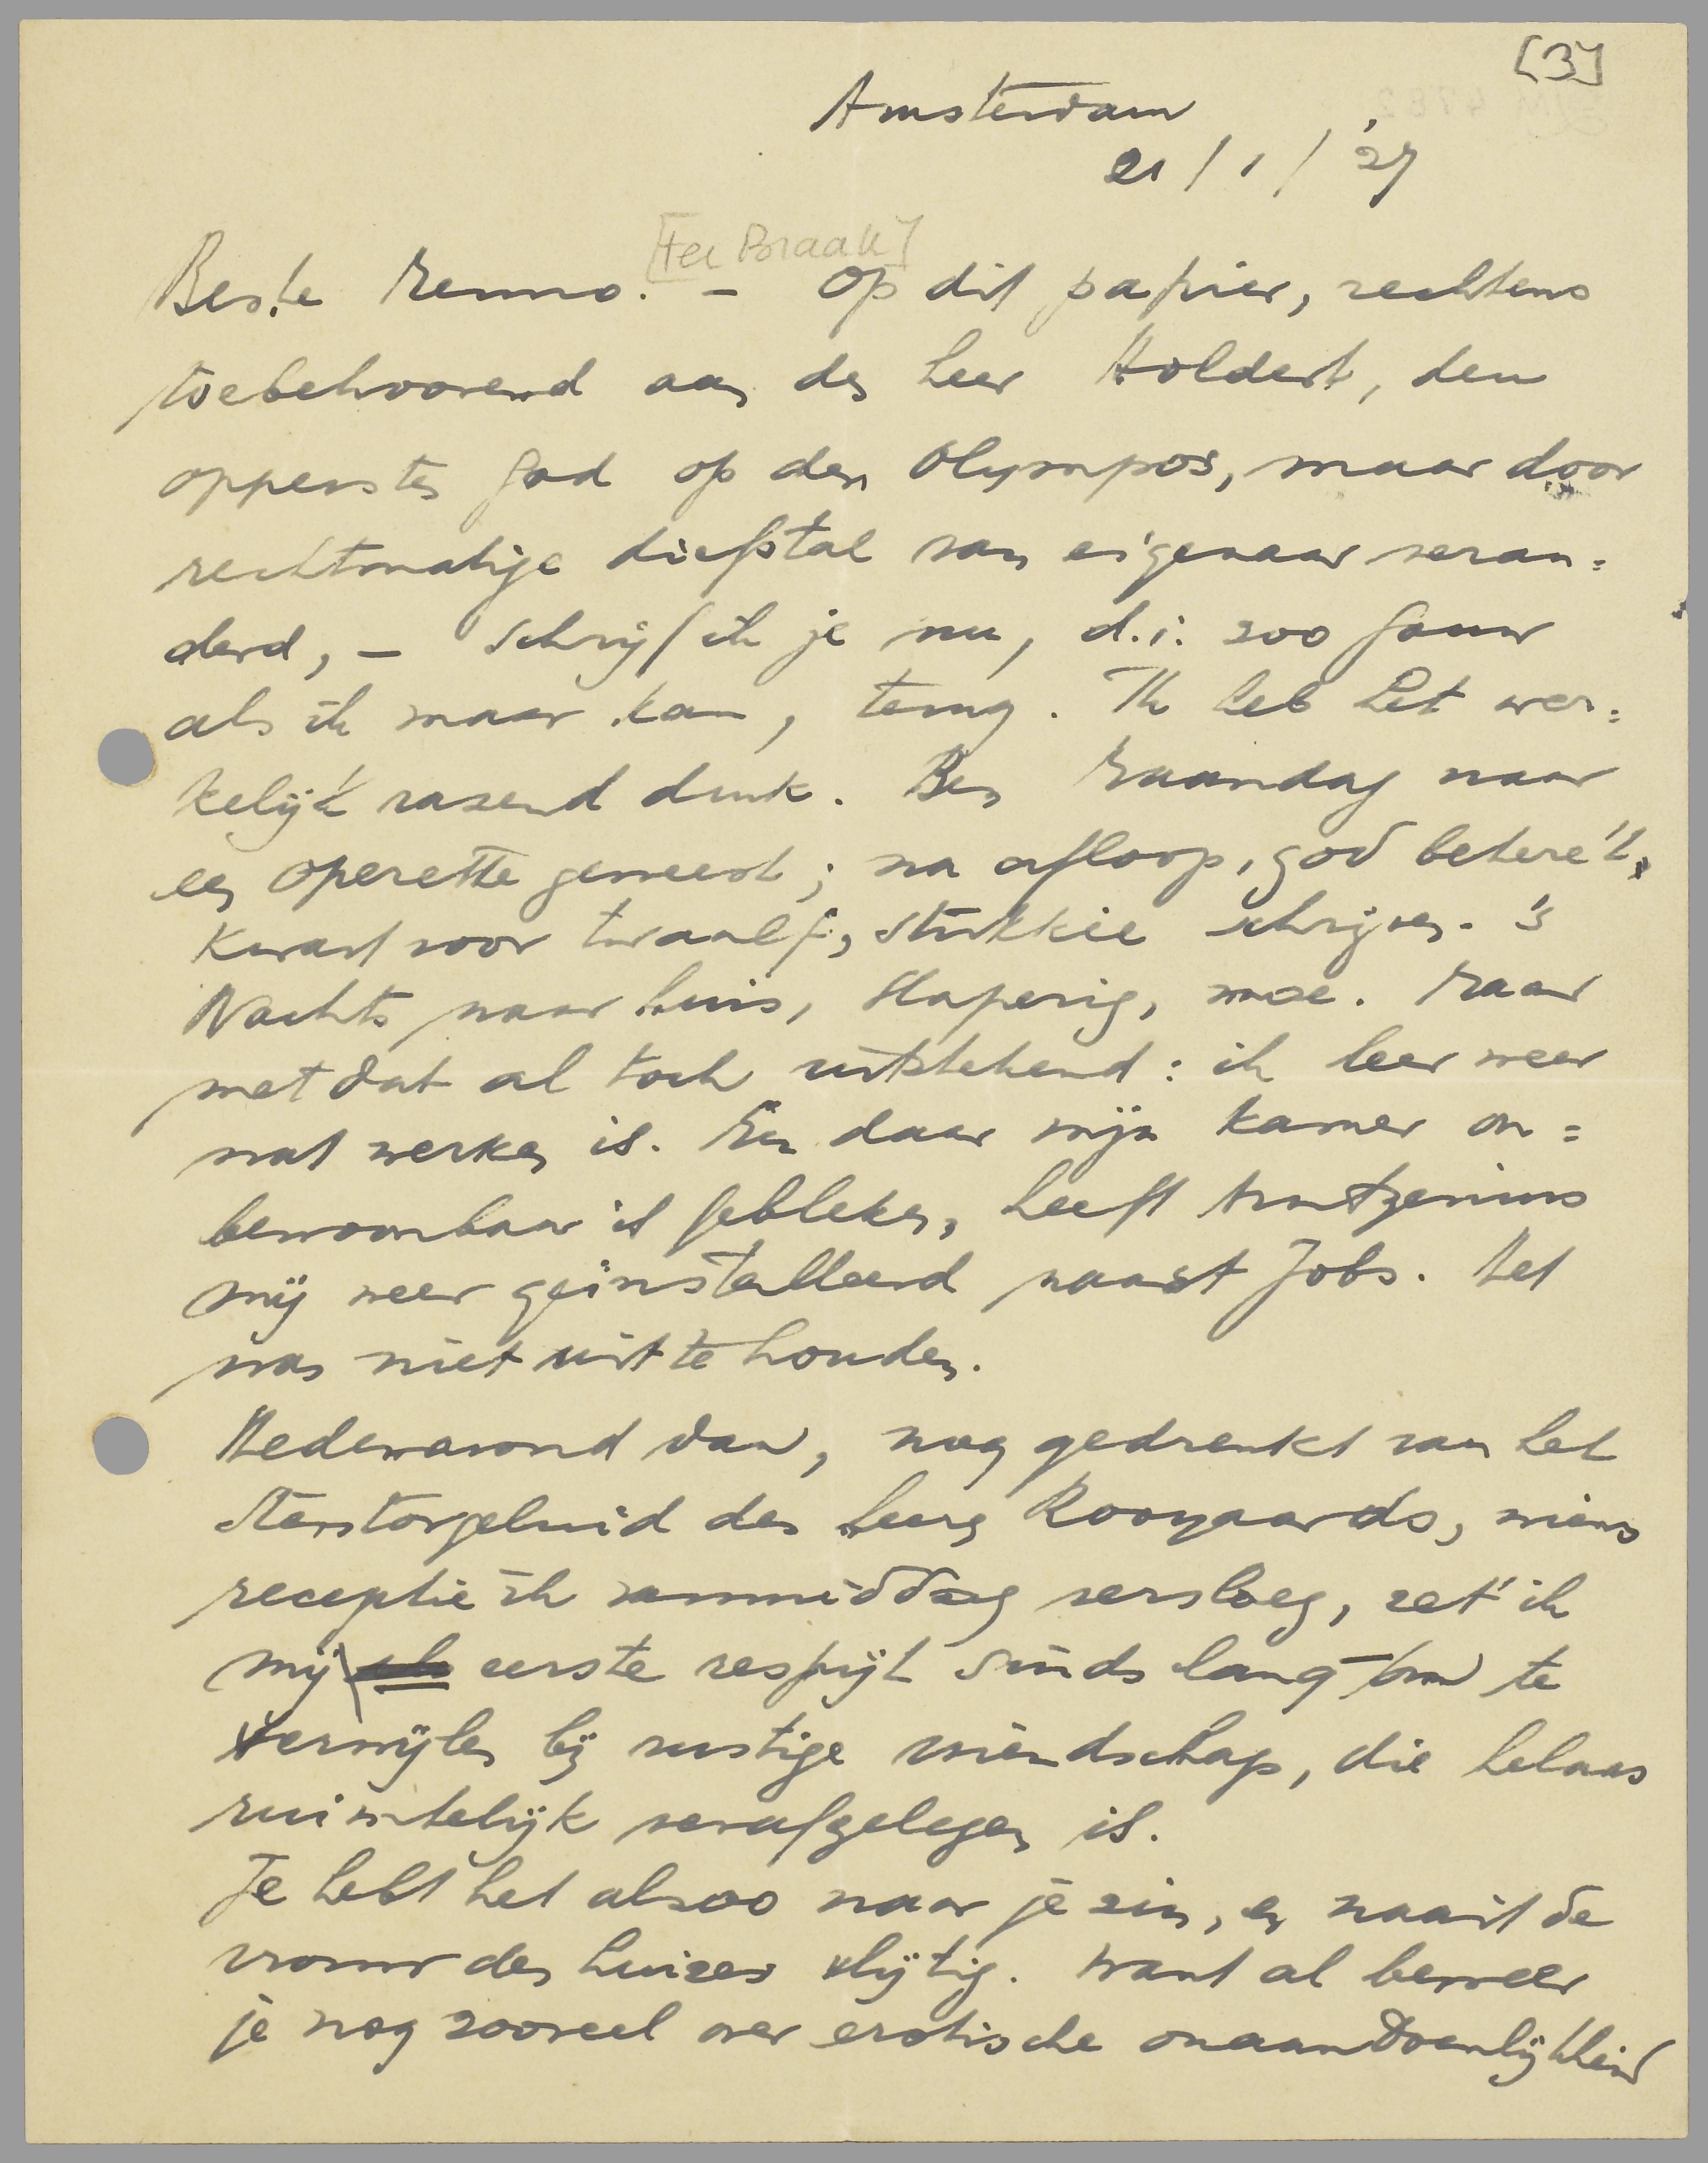 [3]
Amsterdam
21 / 1 / '27
[ter Braak]
Beste Menno. – Op dit papier, rechtens
toebehoorend aan den heer Holdert, den
oppersten god op den Olympos, maar door
rechtmatige diefstal van eigenaar veran=
derd, – schrijf ik je nu, d.i. zoo gauw
als ik maar kan, terug. Ik heb het wer=
kelijk razend druk. Ben Maandag naar
een operette geweest; na afloop, god betere 't,
kwart voor twaalf, stukkie schrijven. 's
Nachts naar huis, slaperig, moe. Maar
met dat al toch uitstekend: ik leer weer
wat werken is. En daar mijn kamer on=
bewoonbaar is gebleken, heeft Arntzenius
mij weer geïnstalleerd naast Jobs. Het
was niet uit te houden.
Hedenavond dan, nog gedrenkt van het
stentorgeluid des heeren Rooyaards, wiens
receptie ik vanmiddag versloeg, zet ik
mij eerste respijt sinds lang om te
verwijlen bij rustige vriendschap, die helaas
ruimtelijk verafgelegen is.
Je hebt het alzoo naar je zin, en naait de
vrouw des huizes vlijtig. Want al beweer
je nog zooveel over erotische onaandoenlijkheid